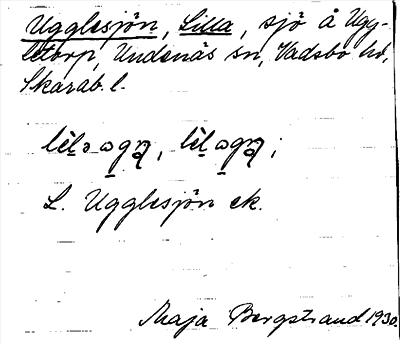 Ugglesjön, Lilla, sjö å Ugg-
letorp, Undenäs sn, Vadsbo hd,
Skarab. l.
L. Ugglesjön ek.
Maja Bergstrand 1930.